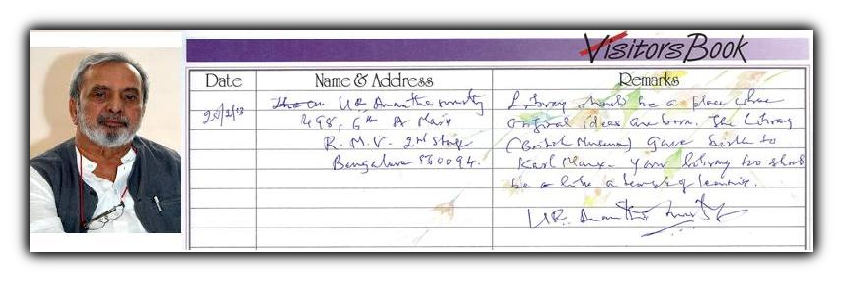 Visitors Book
Date Name & Address Remarks
U.R. Anantha murthy Library should be a place where
498, 6th A Main original ideas are born. The Library
R.M.V. 2nd Stage (British Museum) gave birth to
Bengaluru 560094. Karl Marx. Your library too should
be a like a temple of learning.
U.R. Anantha Murthy